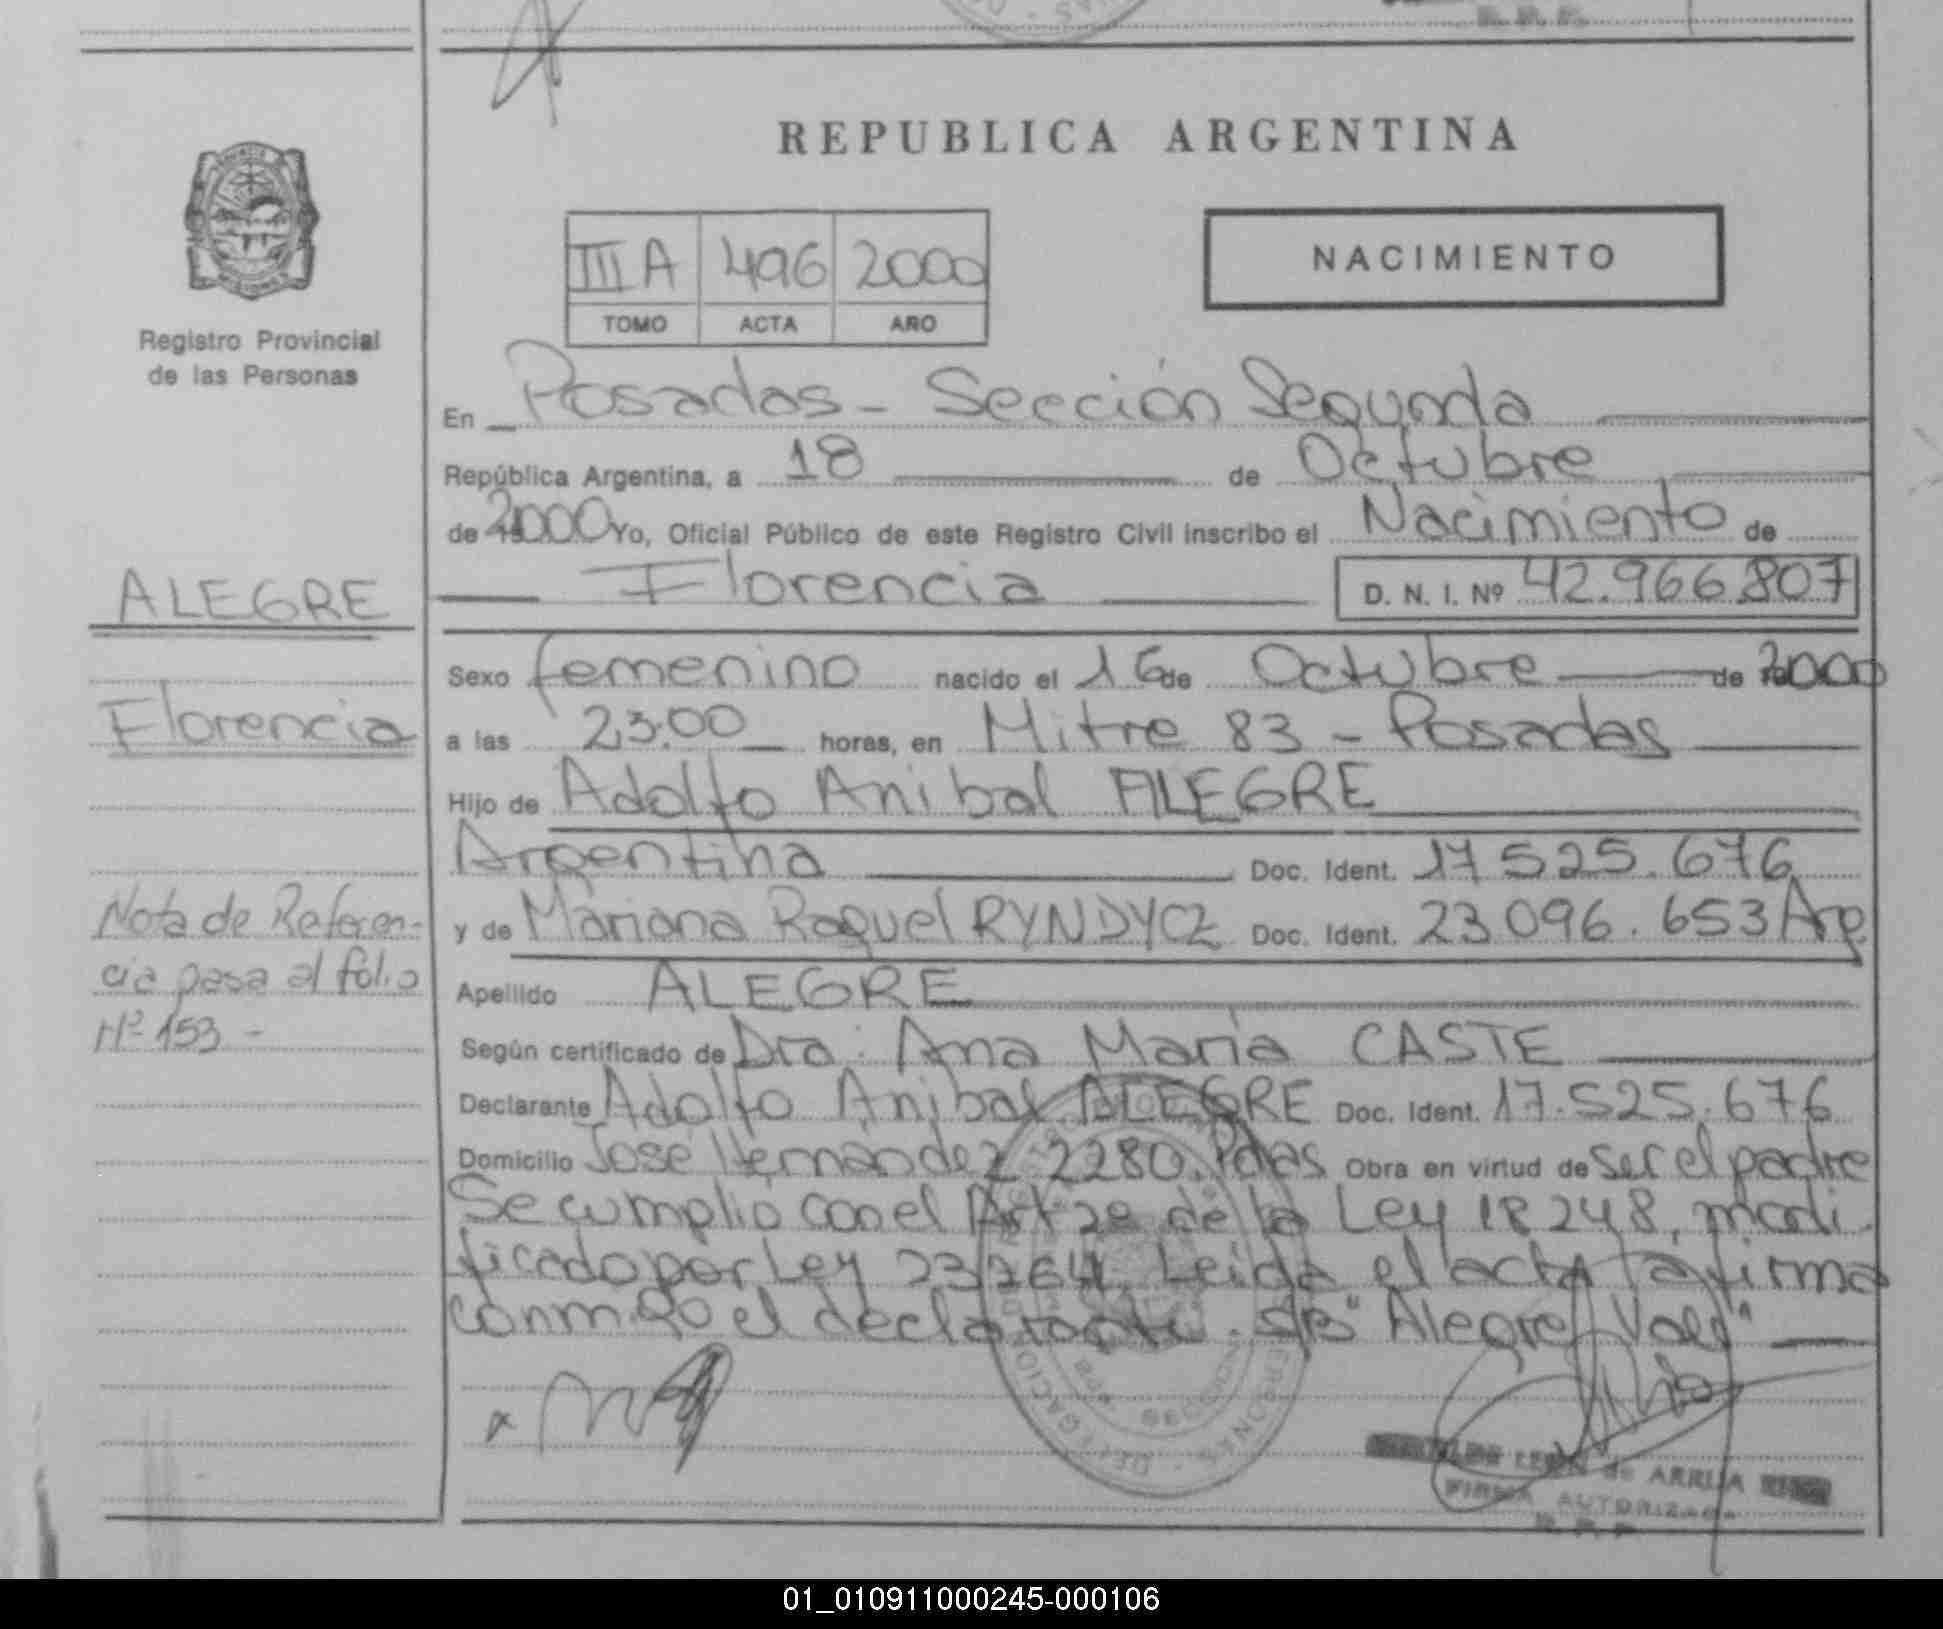 REPUBLICA ARGENTINA
III A 496 2000
TOMO ACTA AÑO
NACIMIENTO
Registro Provincial
de las Personas
En Posadas - Sección Segunda
República Argentina, a 18 de Octubre
de 2000 Yo, Oficial Público de este Registro Civil inscribo el Nacimiento de
Florencia D. N. I. Nº 42.966.807
ALEGRE
Florencia
Nota de Referen-
cia pasa al folio
Nº 153 -
Sexo femenino nacido el 16 de Octubre de 2000
a las 23:00 horas, en Mitre 83 - Posadas
Hijo de Adolfo Anibal ALEGRE
Argentina Doc. Ident. 17.525.676
y de Mariana Raquel RYNDYCZ Doc. Ident. 23.096.653 Arg
Apellido ALEGRE
Según certificado de Dra. Ana María CASTE
Declarante Adolfo Anibal ALEGRE Doc. Ident. 17.525.676
Domicilio José Hernández 2280. Pdas Obra en virtud de ser el padre
Se cumplió con el Art 2º de la Ley 18248, modi
ficado por Ley 23264. Leída el acta la firma
conmigo el declarante. "Alegre Vale"
LEON de ARRUA
FIRMA AUTORIZADA
R. P. P.
01_010911000245-000106